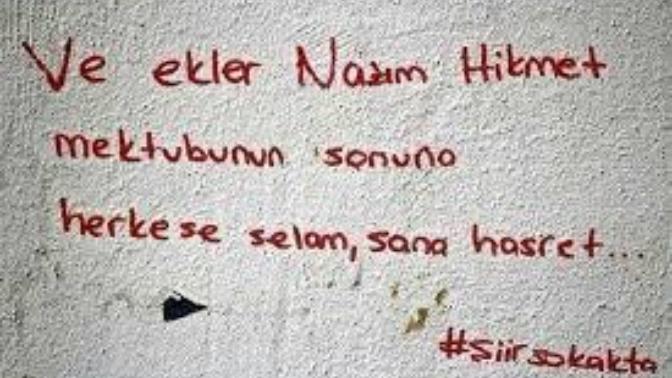 Ve ekler Nazım Hikmet
mektubunun sonuna
herkese selam, sana hasret...
#siirsokakta